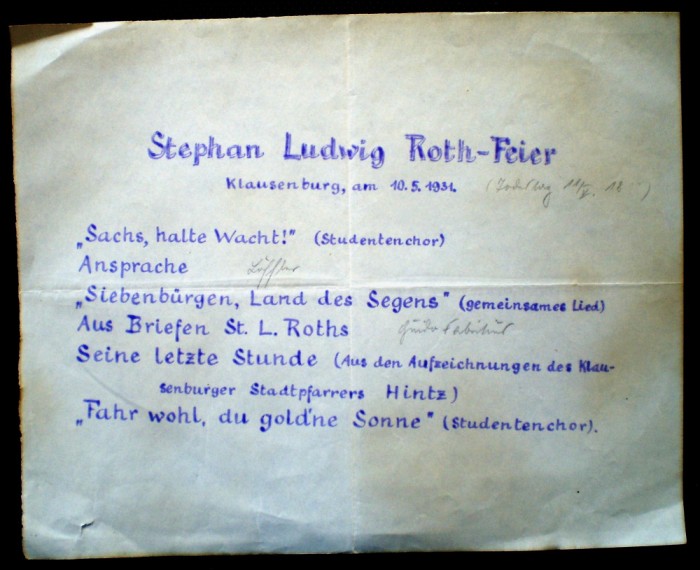 Stephan Ludwig Roth-Feier
Klausenburg, am 10.5.1931. (Todestag 11/V. 18
„Sachs, halte Wacht!" (Studentenchor)
Ansprache
„Siebenbürgen, Land des Segens" (gemeinsames Lied)
Aus Briefen St. L. Roths Guido Fabritius
Seine letzte Stunde (Aus den Aufzeichnungen des Klau-
senburger Stadtpfarrers Hintz)
„Fahr wohl, du gold'ne Sonne" (Studentenchor).